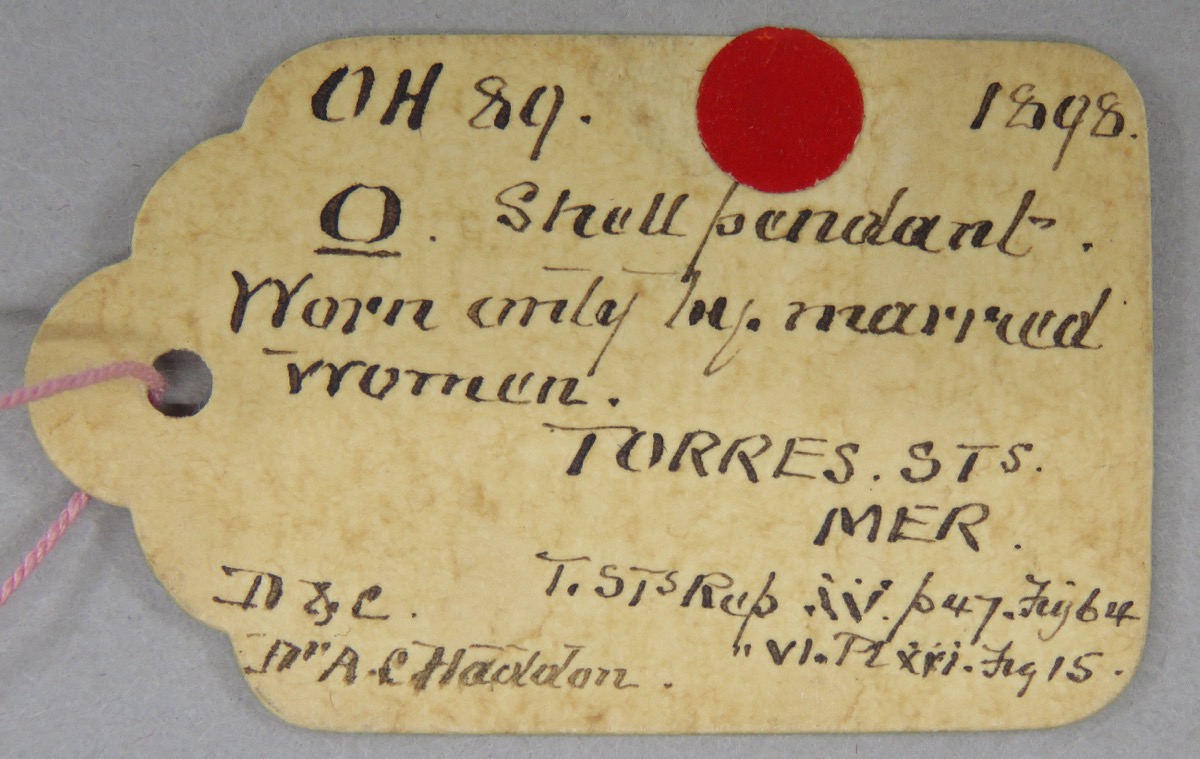 OH 89. 1898.
O. Shell pendant.
Worn only by married
women.
TORRES. STS.
MER.
D & C. T. STS Rep. IV. p 47. Fig 64
Dr A. C Haddon. " VI. Pl xxi. Fig 15.